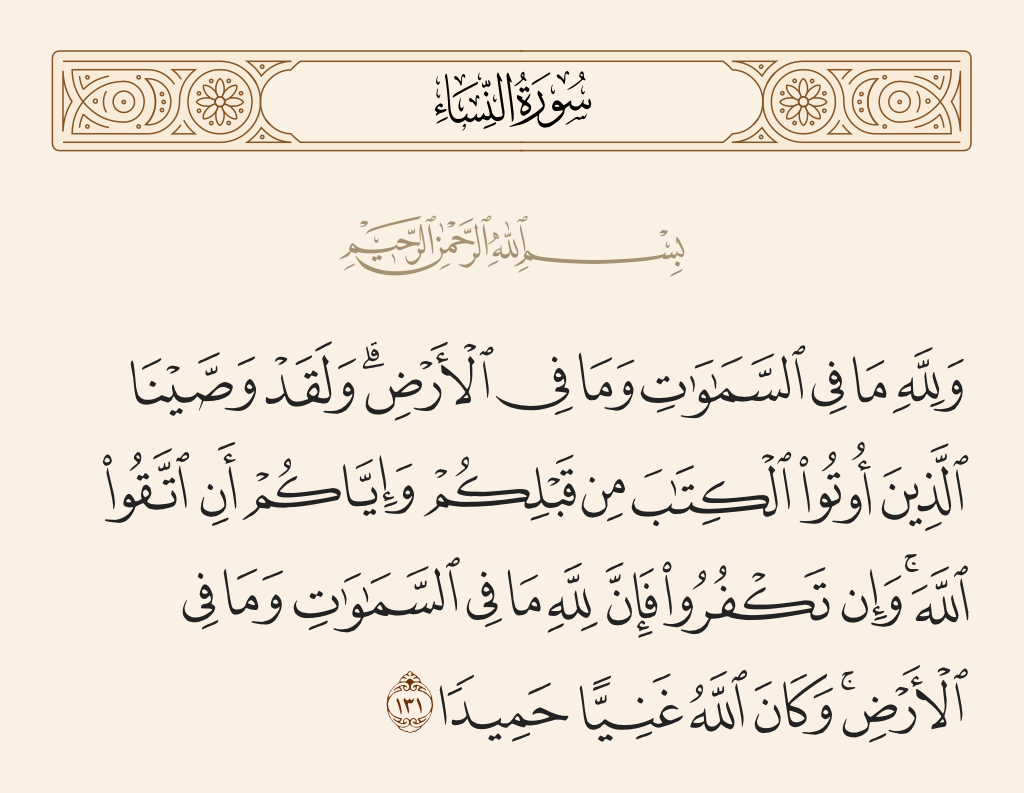 سُورَةُ النِّسَاءِ
بِسْمِ ٱللَّهِ ٱلرَّحْمَٰنِ ٱلرَّحِيمِ
وَلِلَّهِ مَا فِى ٱلسَّمَٰوَٰتِ وَمَا فِى ٱلْأَرْضِ ۗ وَلَقَدْ وَصَّيْنَا
ٱلَّذِينَ أُوتُوا۟ ٱلْكِتَٰبَ مِن قَبْلِكُمْ وَإِيَّاكُمْ أَنِ ٱتَّقُوا۟
ٱللَّهَ ۚ وَإِن تَكْفُرُوا۟ فَإِنَّ لِلَّهِ مَا فِى ٱلسَّمَٰوَٰتِ وَمَا فِى
ٱلْأَرْضِ ۚ وَكَانَ ٱللَّهُ غَنِيًّا حَمِيدًا ١٣١